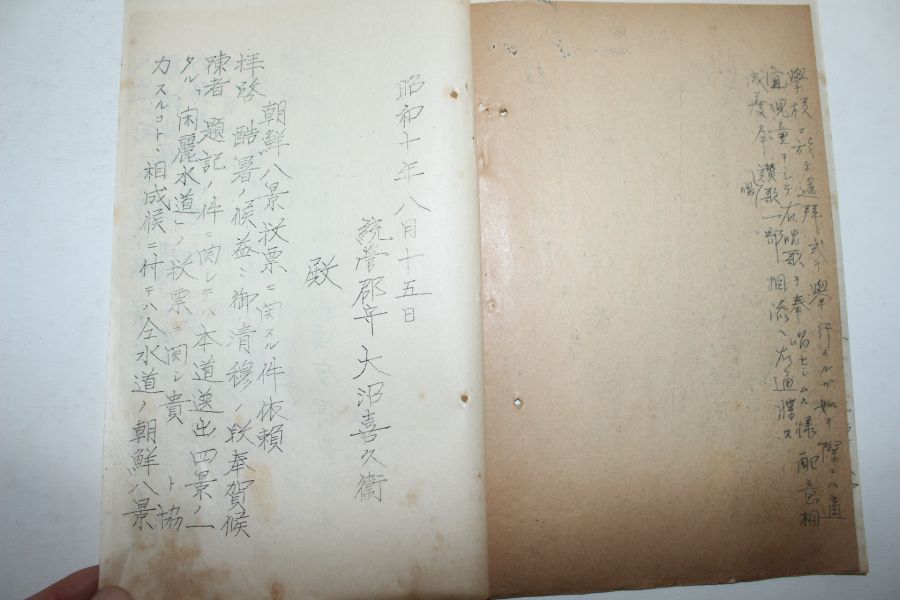 學校ニ於テ遙拜式ヲ擧行スルガ如キ際ニハ適
宜兒童ヲシテ右唱歌ヲ奉唱セシムル樣配意相
成度奉讚歌一部相添ヘ右通牒ス
唱
昭和十年八月十五日
統營郡守 大沼喜久衞
殿
朝鮮八景投票ニ関スル件依頼
拝啓 酷暑ノ候益ミ御清穆ノ段奉賀候
陳者 題記ノ件ニ関シテハ本道選出四景ノ一
タル 閑麗水道ヘノ投票ニ関シ貴 ト協
力スルコトニ相成候ニ付テハ仝水道ノ朝鮮八景